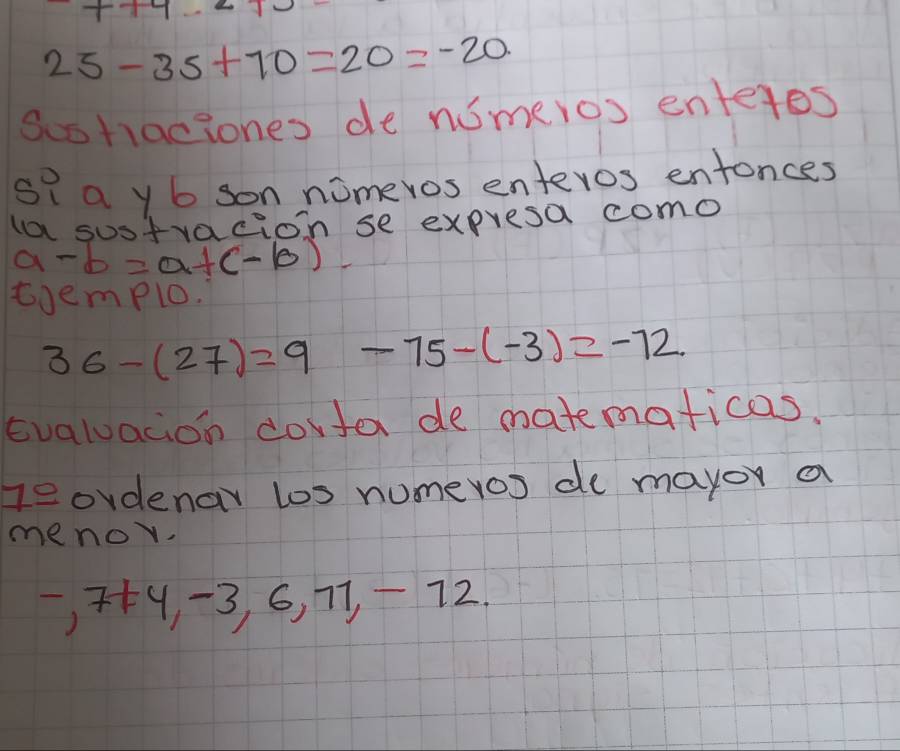 25 - 35 + 10 = 20 = -20.
Sustraciones de números enteros
Si a y b son números enteros entonces
la sustración se expresa como
a - b = a + (-b).
Ejemplo.
36 - (27) = 9 -15 - (-3) = -12.
Evaluación corta de matematicas.
1º ordenar los numeros de mayor a
menor.
-, 7 + 4, -3, 6, 11, - 12.